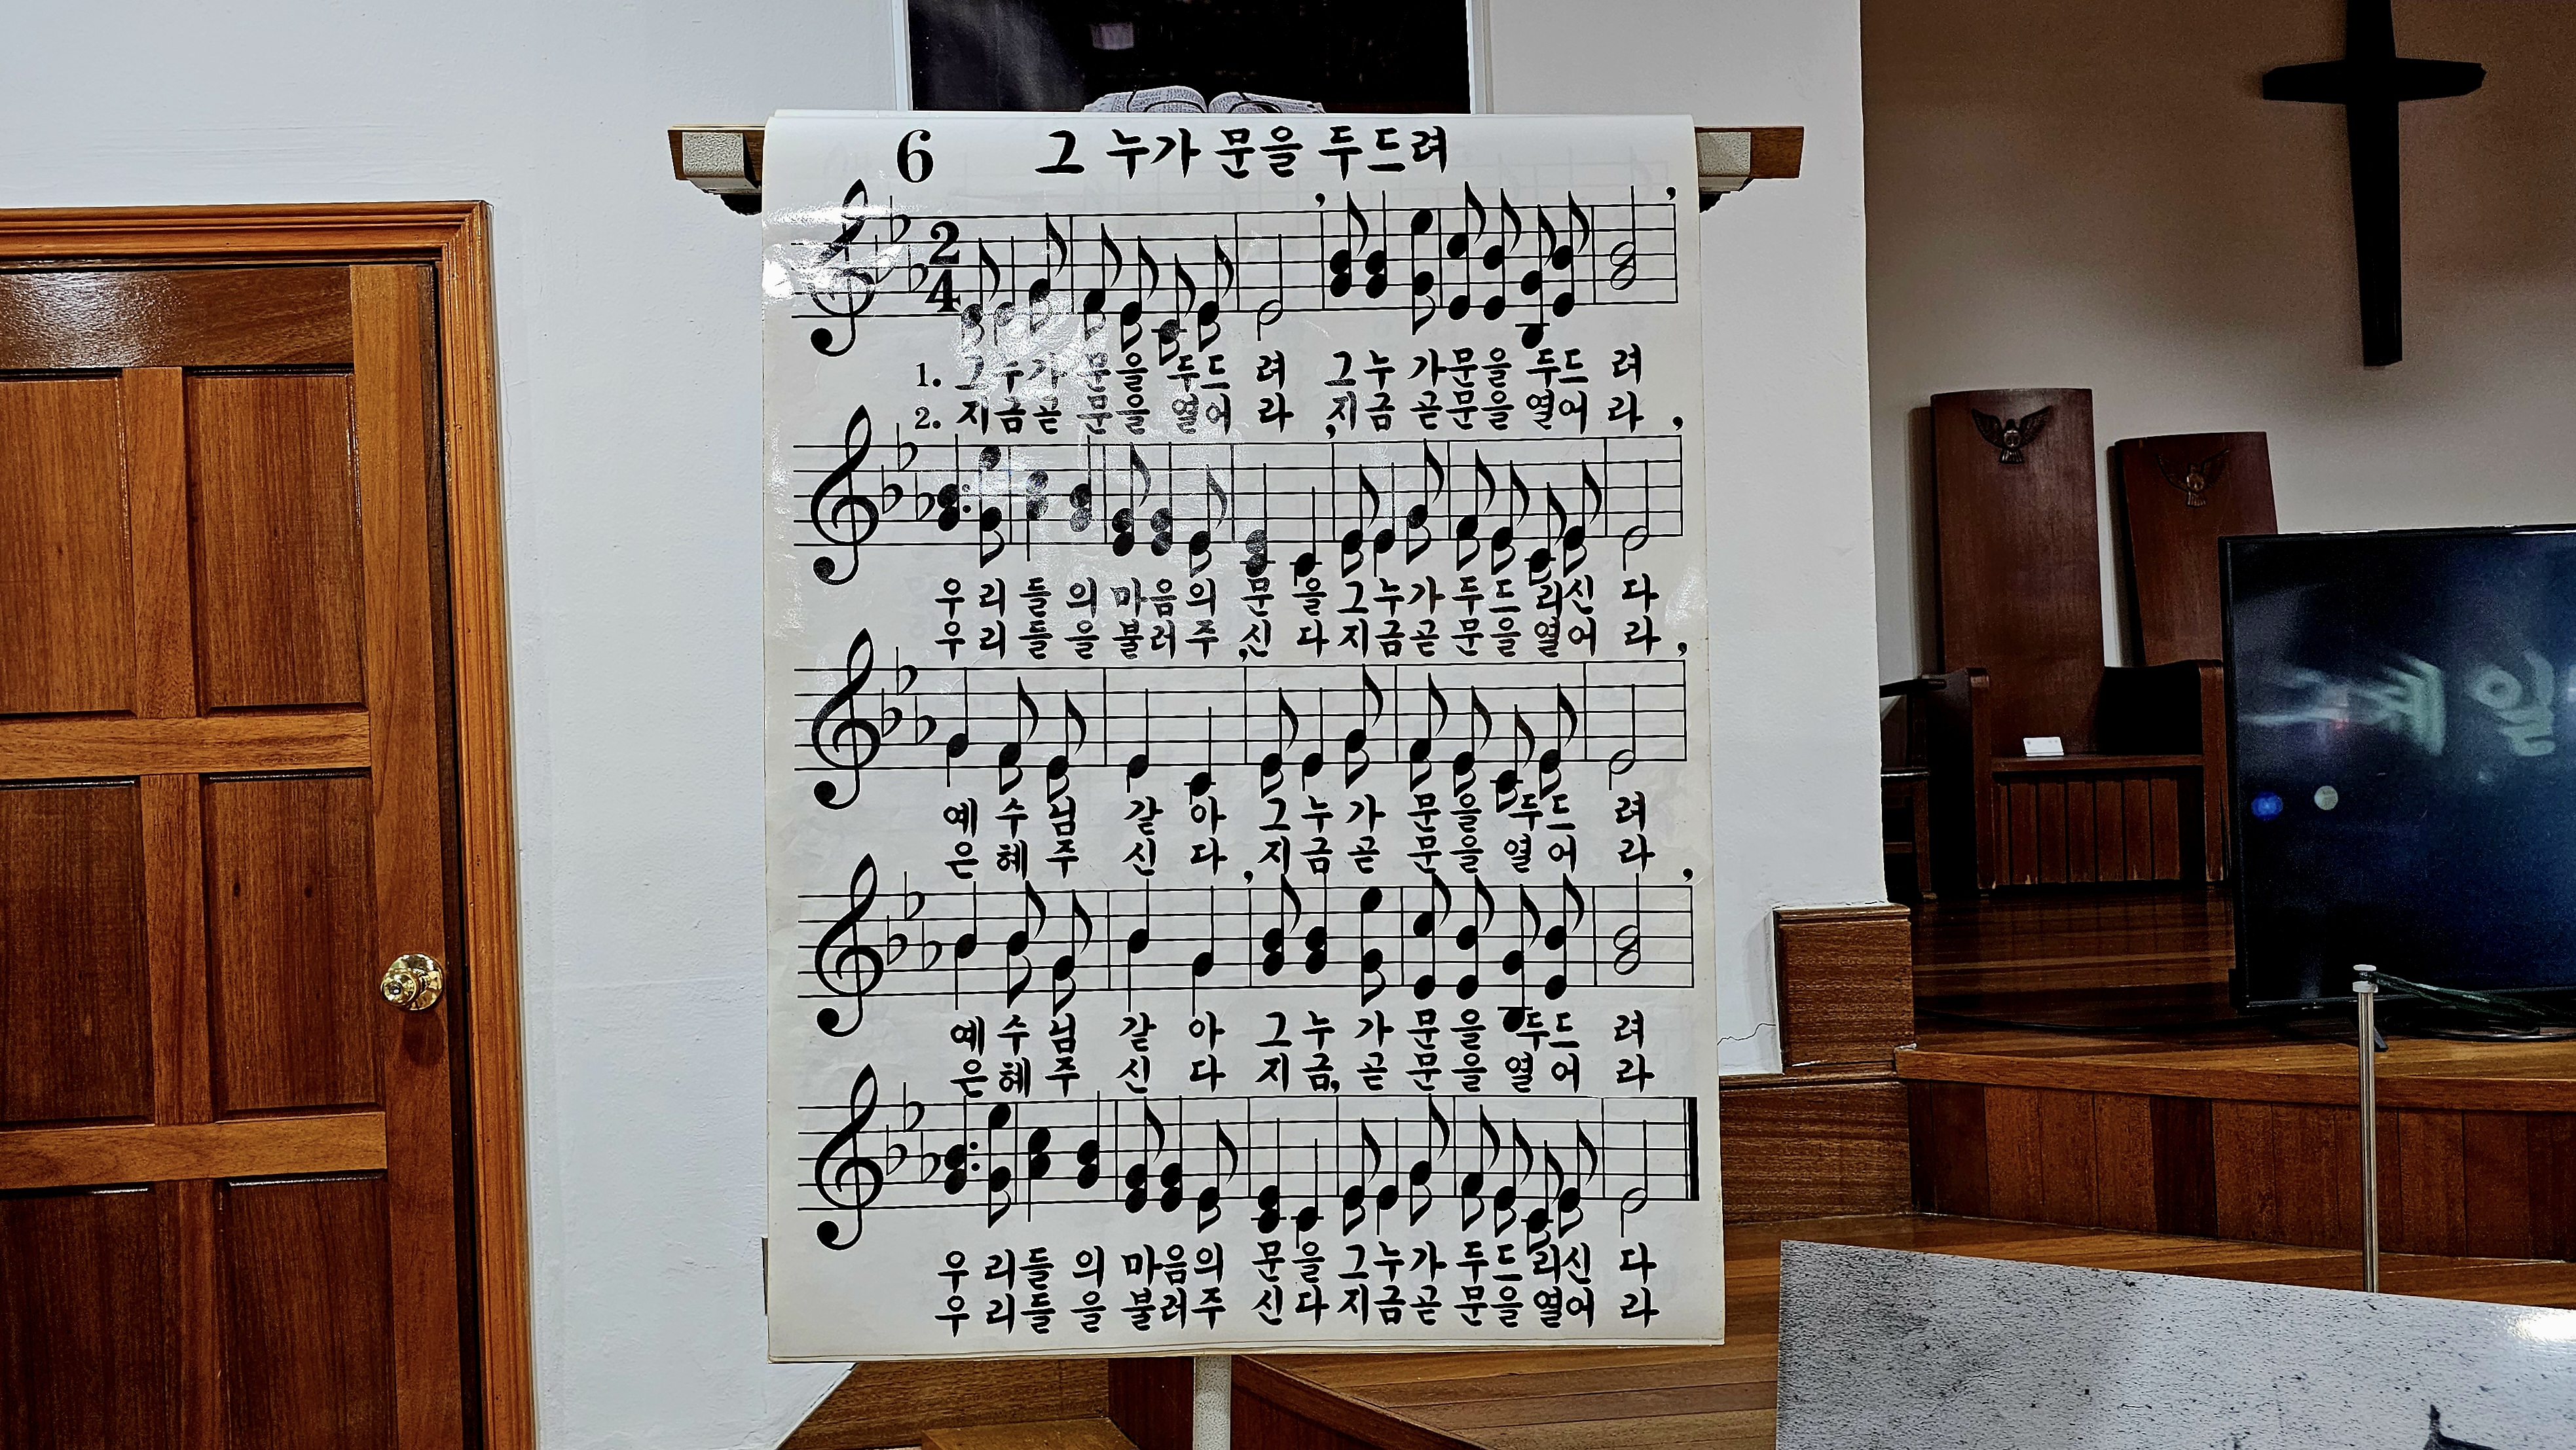 6 그 누가 문을 두드려
2
4
1. 그누가 문을 두드 려 그누 가문을 두드 려
2. 지금곧 문을 열어 라 지금 곧문을 열어 라
우 리 들 의 마음의 문 을 그누가 두드 리신 다
우 리 들 을 불러주 신 다 지금곧 문을 열어 라
예 수 님 같 아 그 누 가 문 을 두드 려
은 혜 주 신 다 지 금 곧 문 을 열 어 라
예 수 님 같 아 그 누 가 문 을 두드 려
은 혜 주 신 다 지 금 곧 문 을 열 어 라
우 리들 의 마음의 문을 그누가 두드 리신 다
우 리들 을 불러주 신다 지금곧 문을 열어 라
제일